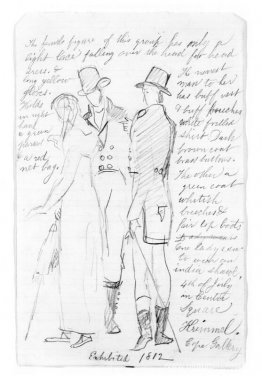 The female figure of this group has only a
light lace falling over the head for head
dress. &
long yellow
gloves.
Holds
in right
hand
a green
&
a red
net bag.
The nearest
man to her
has buff vest
& buff breeches
white frilled
shirt Dark
brown coat
brass buttons.
The other a
green coat
whitish
breeches &
fair top boots
is
One lady
to wear an
india shawl,
4th of July
in Centre
Square
Krimmel.
Expo Gallery
Exhibited 1812